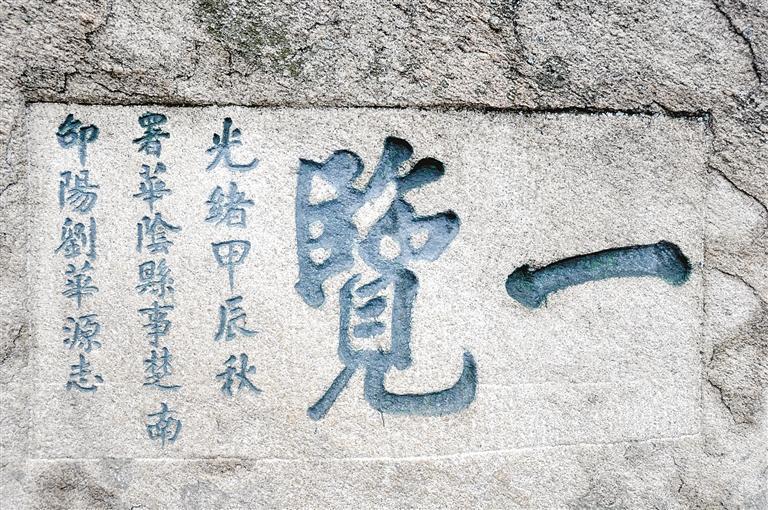 一覽
光緒甲辰秋
署華陰縣事楚南
邵陽劉華源志